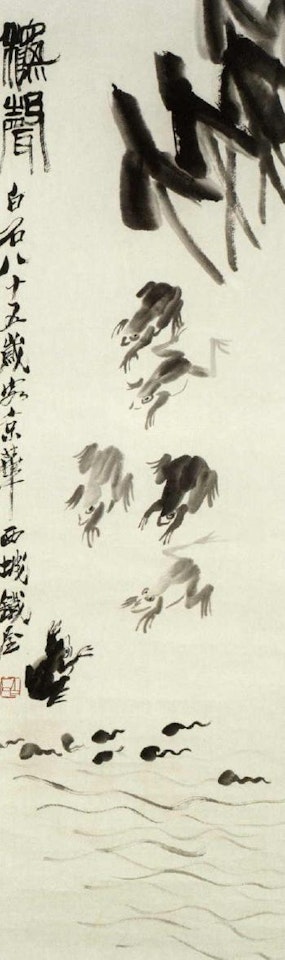 聲
白石八十五歲客京華西城鐵屋